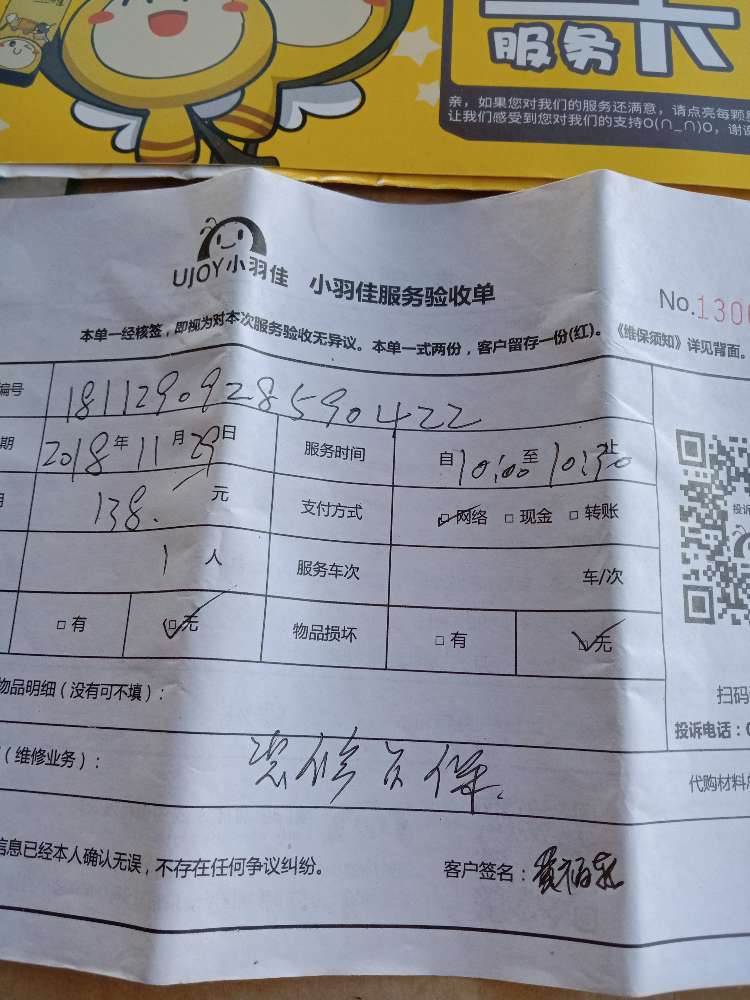 服务 卡
亲，如果您对我们的服务还满意，请点亮每颗
让我们感受到您对我们的支持O(∩_∩)O，谢谢
UJOY小羽佳 小羽佳服务验收单
No.1300
本单一经核签，即视为对本次服务验收无异议。本单一式两份，客户留存一份(红)。《维保须知》详见背面。
编号 181129092859 0422
期 2018年11月29日 服务时间 自10:00至10:30止
138. 元 支付方式 网络 现金 转账
1人 服务车次 车/次
有 无 物品损坏 有 无
投诉
物品明细（没有可不填）：
扫码
投诉电话：0
（维修业务）：
代购材料总
信息已经本人确认无误，不存在任何争议纠纷。 客户签名：